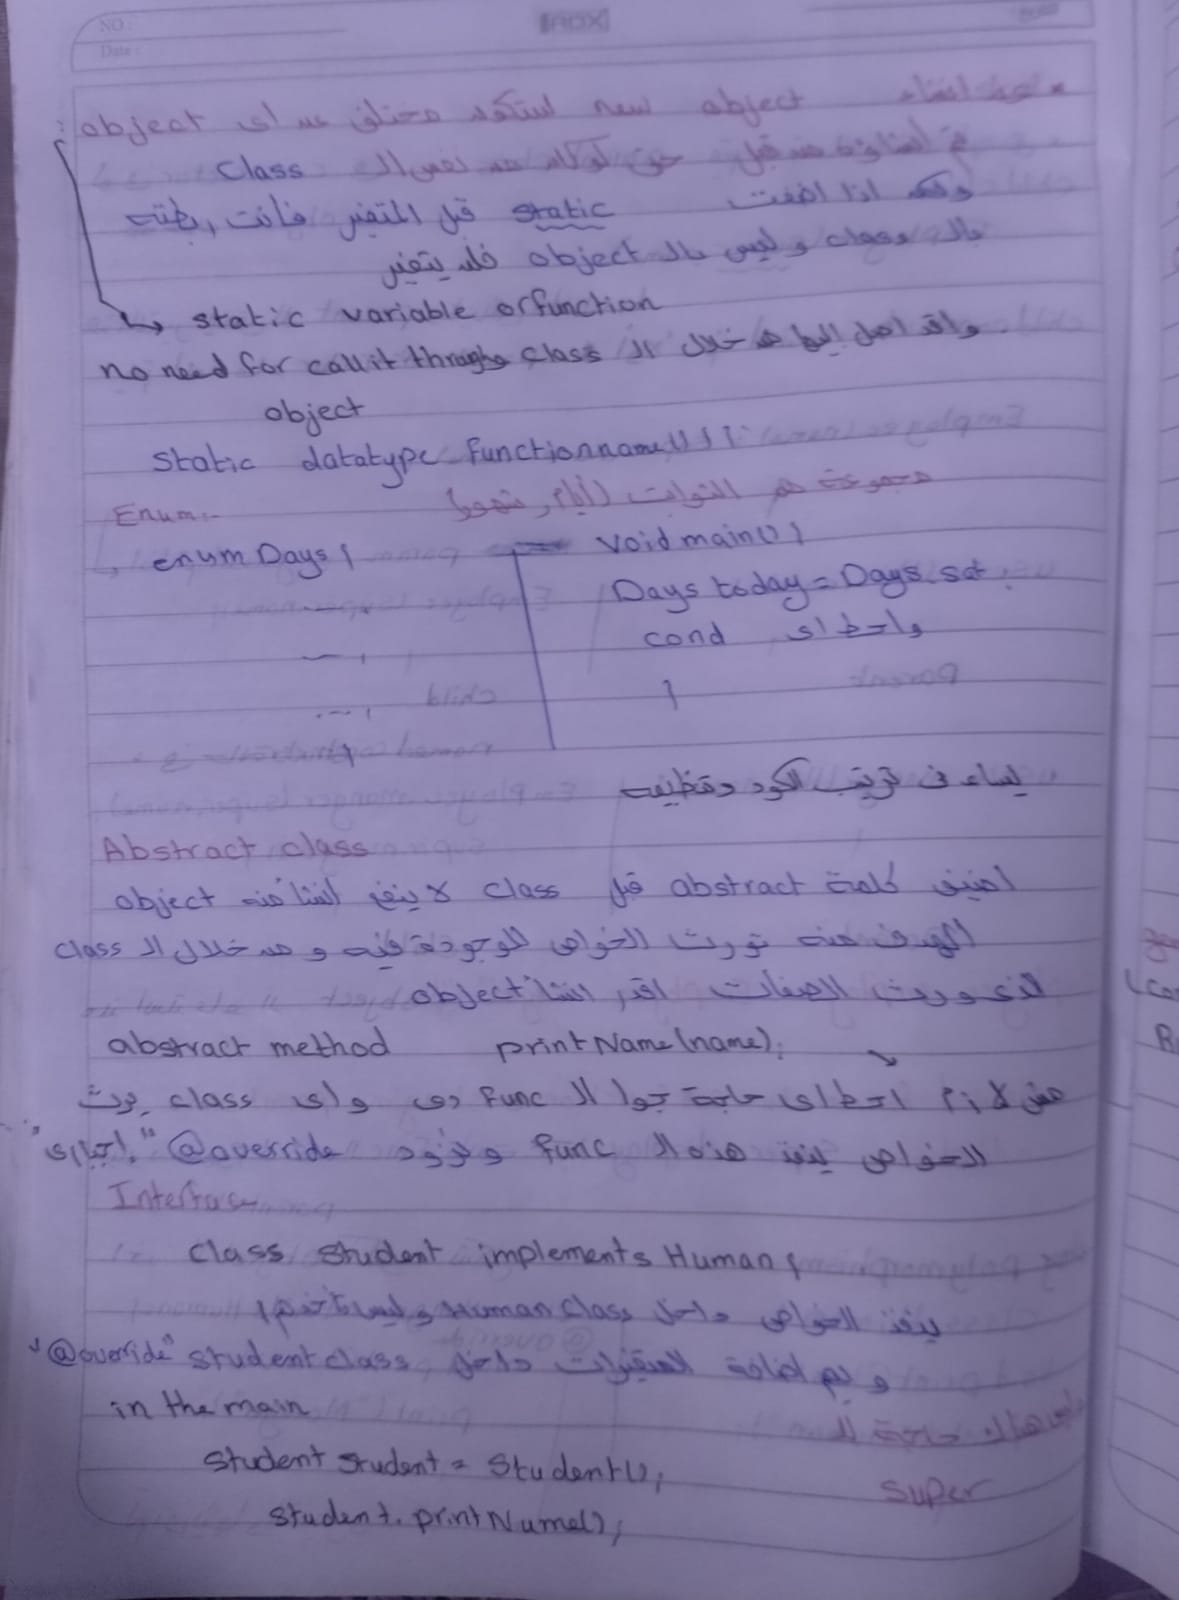 NO :
Date :
عند انشاء new object ستكون مختلف عن اى object
تم انشاؤه من قبل حتى لو كان من نفس الـ Class
ولكن اذا اضفت static قبل المتغير فأنت ربطته
بالـ class وليس بالـ object فلن يتغير
↳ static variable or function
no need for call it through class واقدر اصل اليها من خلال الـ
object
Static datatype functionname() { }
Enum:- مجموعة من الثوابت (أيام, شهور)
enum Days {
void main() {
Days today = Days.sat;
cond واحط اى
}
يساعد فى ترتيب الكود وتنظيمه
Abstract class
اضيف كلمة abstract قبل class لا ينفع انشأ منه object
الهدف منه تورث الخواص الموجودة فيه ومن خلال الـ class
الذى ورث الصفات اقدر انشأ object
abstract method printName(name);
مش لازم احط اى حاجة جوا الـ func دى واى class يورث
الخواص ينفذ هذه الـ func ونزود @override "اجبارى"
Interface
class Student implements Human {
ينفذ الخواص داخل Human class وليس
و يتم اضافة المتغيرات داخل student class "@override"
in the main
حاجة الـ
super
Student student = Student();
student.printName();